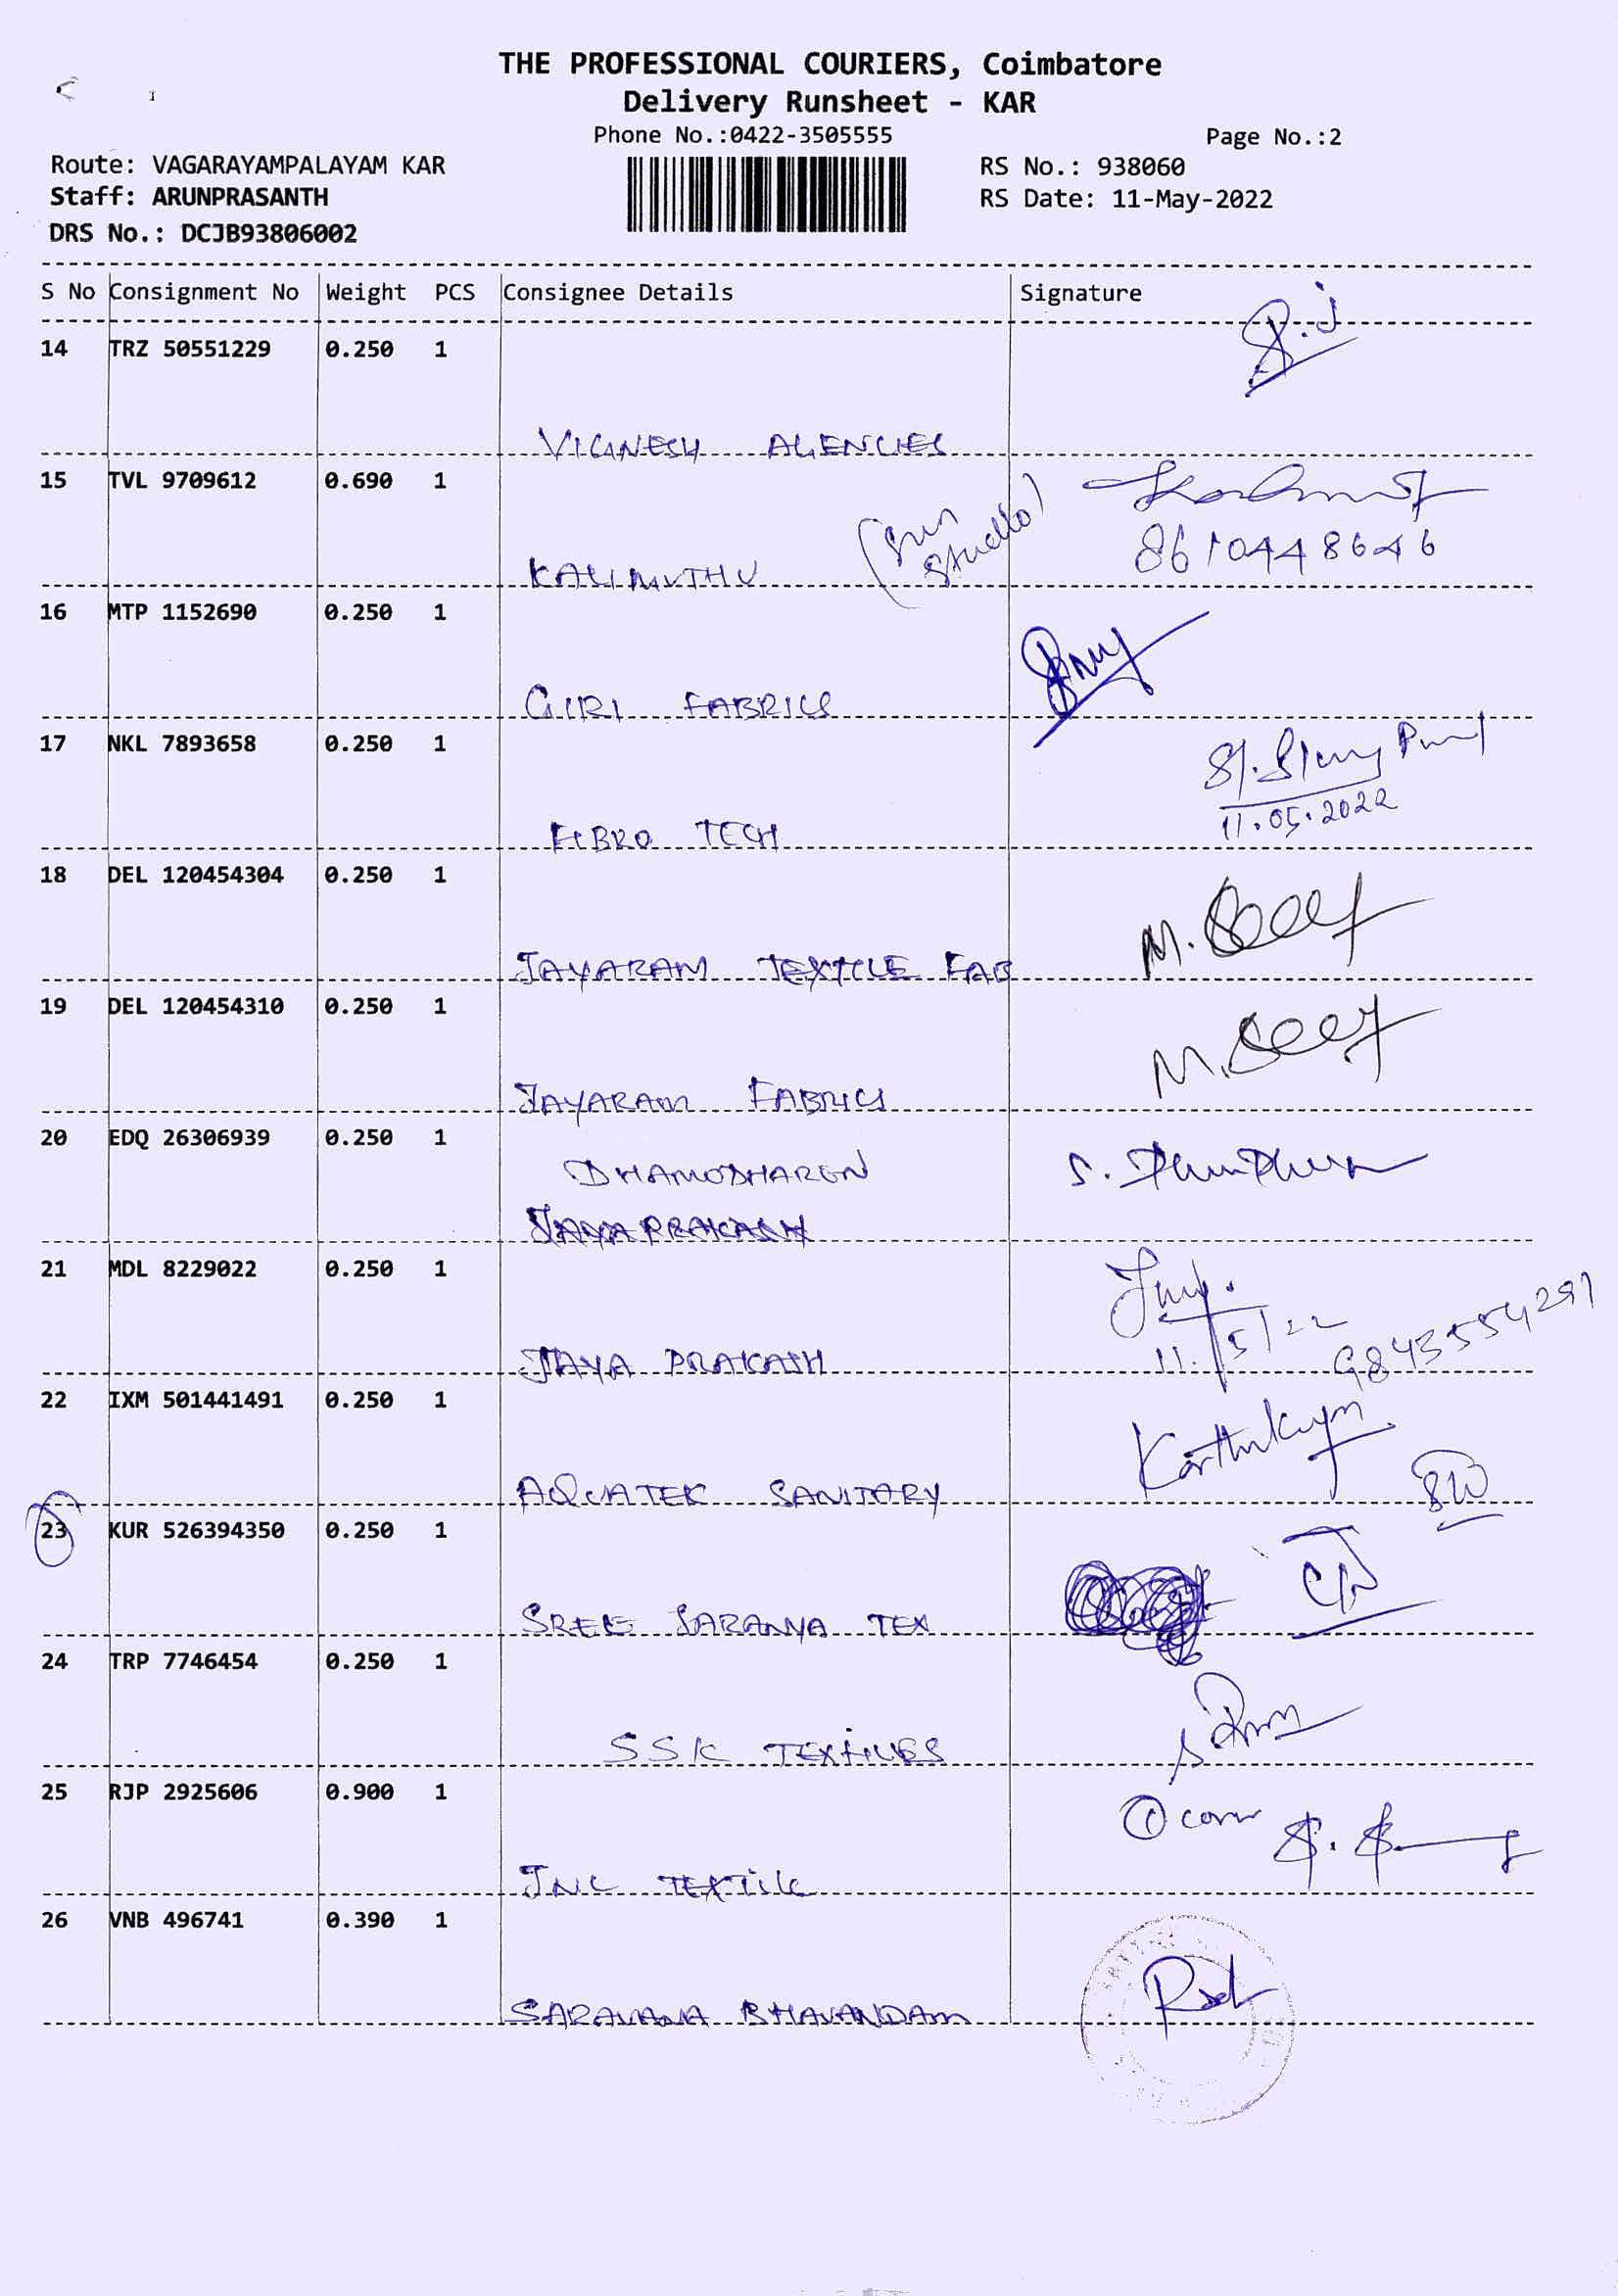 THE PROFESSIONAL COURIERS, Coimbatore
Delivery Runsheet - KAR
Phone No.:0422-3505555
Page No.:2
Route: VAGARAYAMPALAYAM KAR
RS No.: 938060
Staff: ARUNPRASANTH
RS Date: 11-May-2022
DRS No.: DCJB93806002
S No Consignment No Weight PCS Consignee Details Signature
14 TRZ 50551229 0.250 1
VIGNESH AGENCIES
15 TVL 9709612 0.690 1
(Sun Studio)
8610448646
KALIMUTHU
16 MTP 1152690 0.250 1
GIRI FABRICS
17 NKL 7893658 0.250 1
11.05.2022
FIBRO TECH
18 DEL 120454304 0.250 1
JAYARAM TEXTILE FAB
19 DEL 120454310 0.250 1
JAYARAM FABRICS
20 EDQ 26306939 0.250 1
DHAMODHAREN
JAYAPRAKASH
21 MDL 8229022 0.250 1
11/5/22 9843554291
JAYA PRAKASH
22 IXM 501441491 0.250 1
AQUATEK SANITARY
23 KUR 526394350 0.250 1
SREE SARANYA TEX
24 TRP 7746454 0.250 1
SSK TEXTILES
25 RJP 2925606 0.900 1
JNC TEXTILE
26 VNB 496741 0.390 1
SARAVANA BHAVANDAM